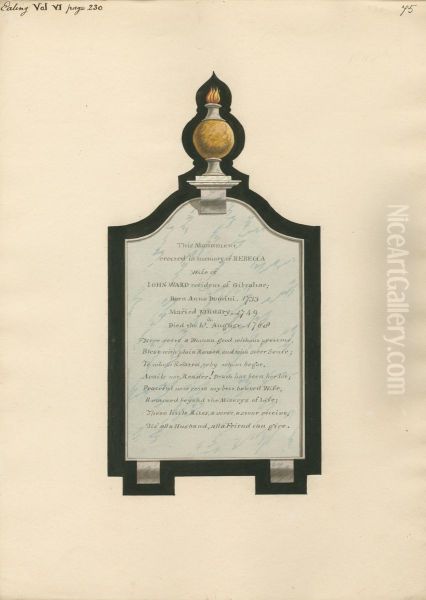 Ealing Vol VI page 230
75
This Monument,
erected in memory of REBECCA
Wife of
IOHN WARD resident of Gibraltar;
Born Anno Domini, 1733
Maried January, 1749
Died the August, 1768
Here rests a Woman good without pretence,
Blest with plain Reason, and with sober Sense;
To whom Related, or by whom begot,
Avails not, Reader! Death has been her lot;
Peaceful now rests my best beloved Wife,
Removed beyond the Miserys of Life;
These little Rites, a verse, a tear receive;
Tis all a Husband, all a Friend can give.
NiceArtGallery.com